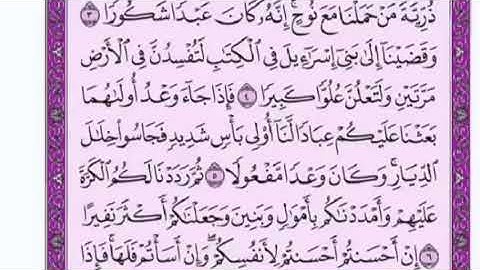 ذُرِّيَّةَ مَنْ حَمَلْنَا مَعَ نُوحٍ ۚ إِنَّهُۥ كَانَ عَبْدًا شَكُورًا ٣
وَقَضَيْنَآ إِلَىٰ بَنِىٓ إِسْرَٰٓءِيلَ فِى ٱلْكِتَٰبِ لَتُفْسِدُنَّ فِى ٱلْأَرْضِ
مَرَّتَيْنِ وَلَتَعْلُنَّ عُلُوًّا كَبِيرًا ٤ فَإِذَا جَآءَ وَعْدُ أُولَىٰهُمَا
بَعَثْنَا عَلَيْكُمْ عِبَادًا لَّنَآ أُو۟لِى بَأْسٍ شَدِيدٍ فَجَاسُوا۟ خِلَٰلَ
ٱلدِّيَارِ ۚ وَكَانَ وَعْدًا مَّفْعُولًا ٥ ثُمَّ رَدَدْنَا لَكُمُ ٱلْكَرَّةَ
عَلَيْهِمْ وَأَمْدَدْنَٰكُم بِأَمْوَٰلٍ وَبَنِينَ وَجَعَلْنَٰكُمْ أَكْثَرَ نَفِيرًا
٦ إِنْ أَحْسَنتُمْ أَحْسَنتُمْ لِأَنفُسِكُمْ ۖ وَإِنْ أَسَأْتُمْ فَلَهَا ۚ فَإِذَا